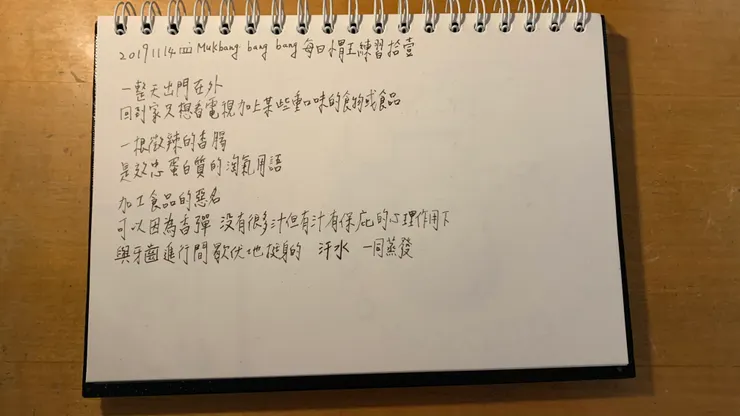 20191114 四 Mukbang bang bang 每日胃王練習拾壹
一整天出門在外
回到家只想看電視加上某些重口味的食物或食品
一根微辣的香腸
是效忠蛋白質的淘氣用語
加工食品的惡名
可以因為香彈 沒有很多汁但有汁有保庇的心理作用下
與牙齒進行間歇伏地挺身的 汗水 一同蒸發